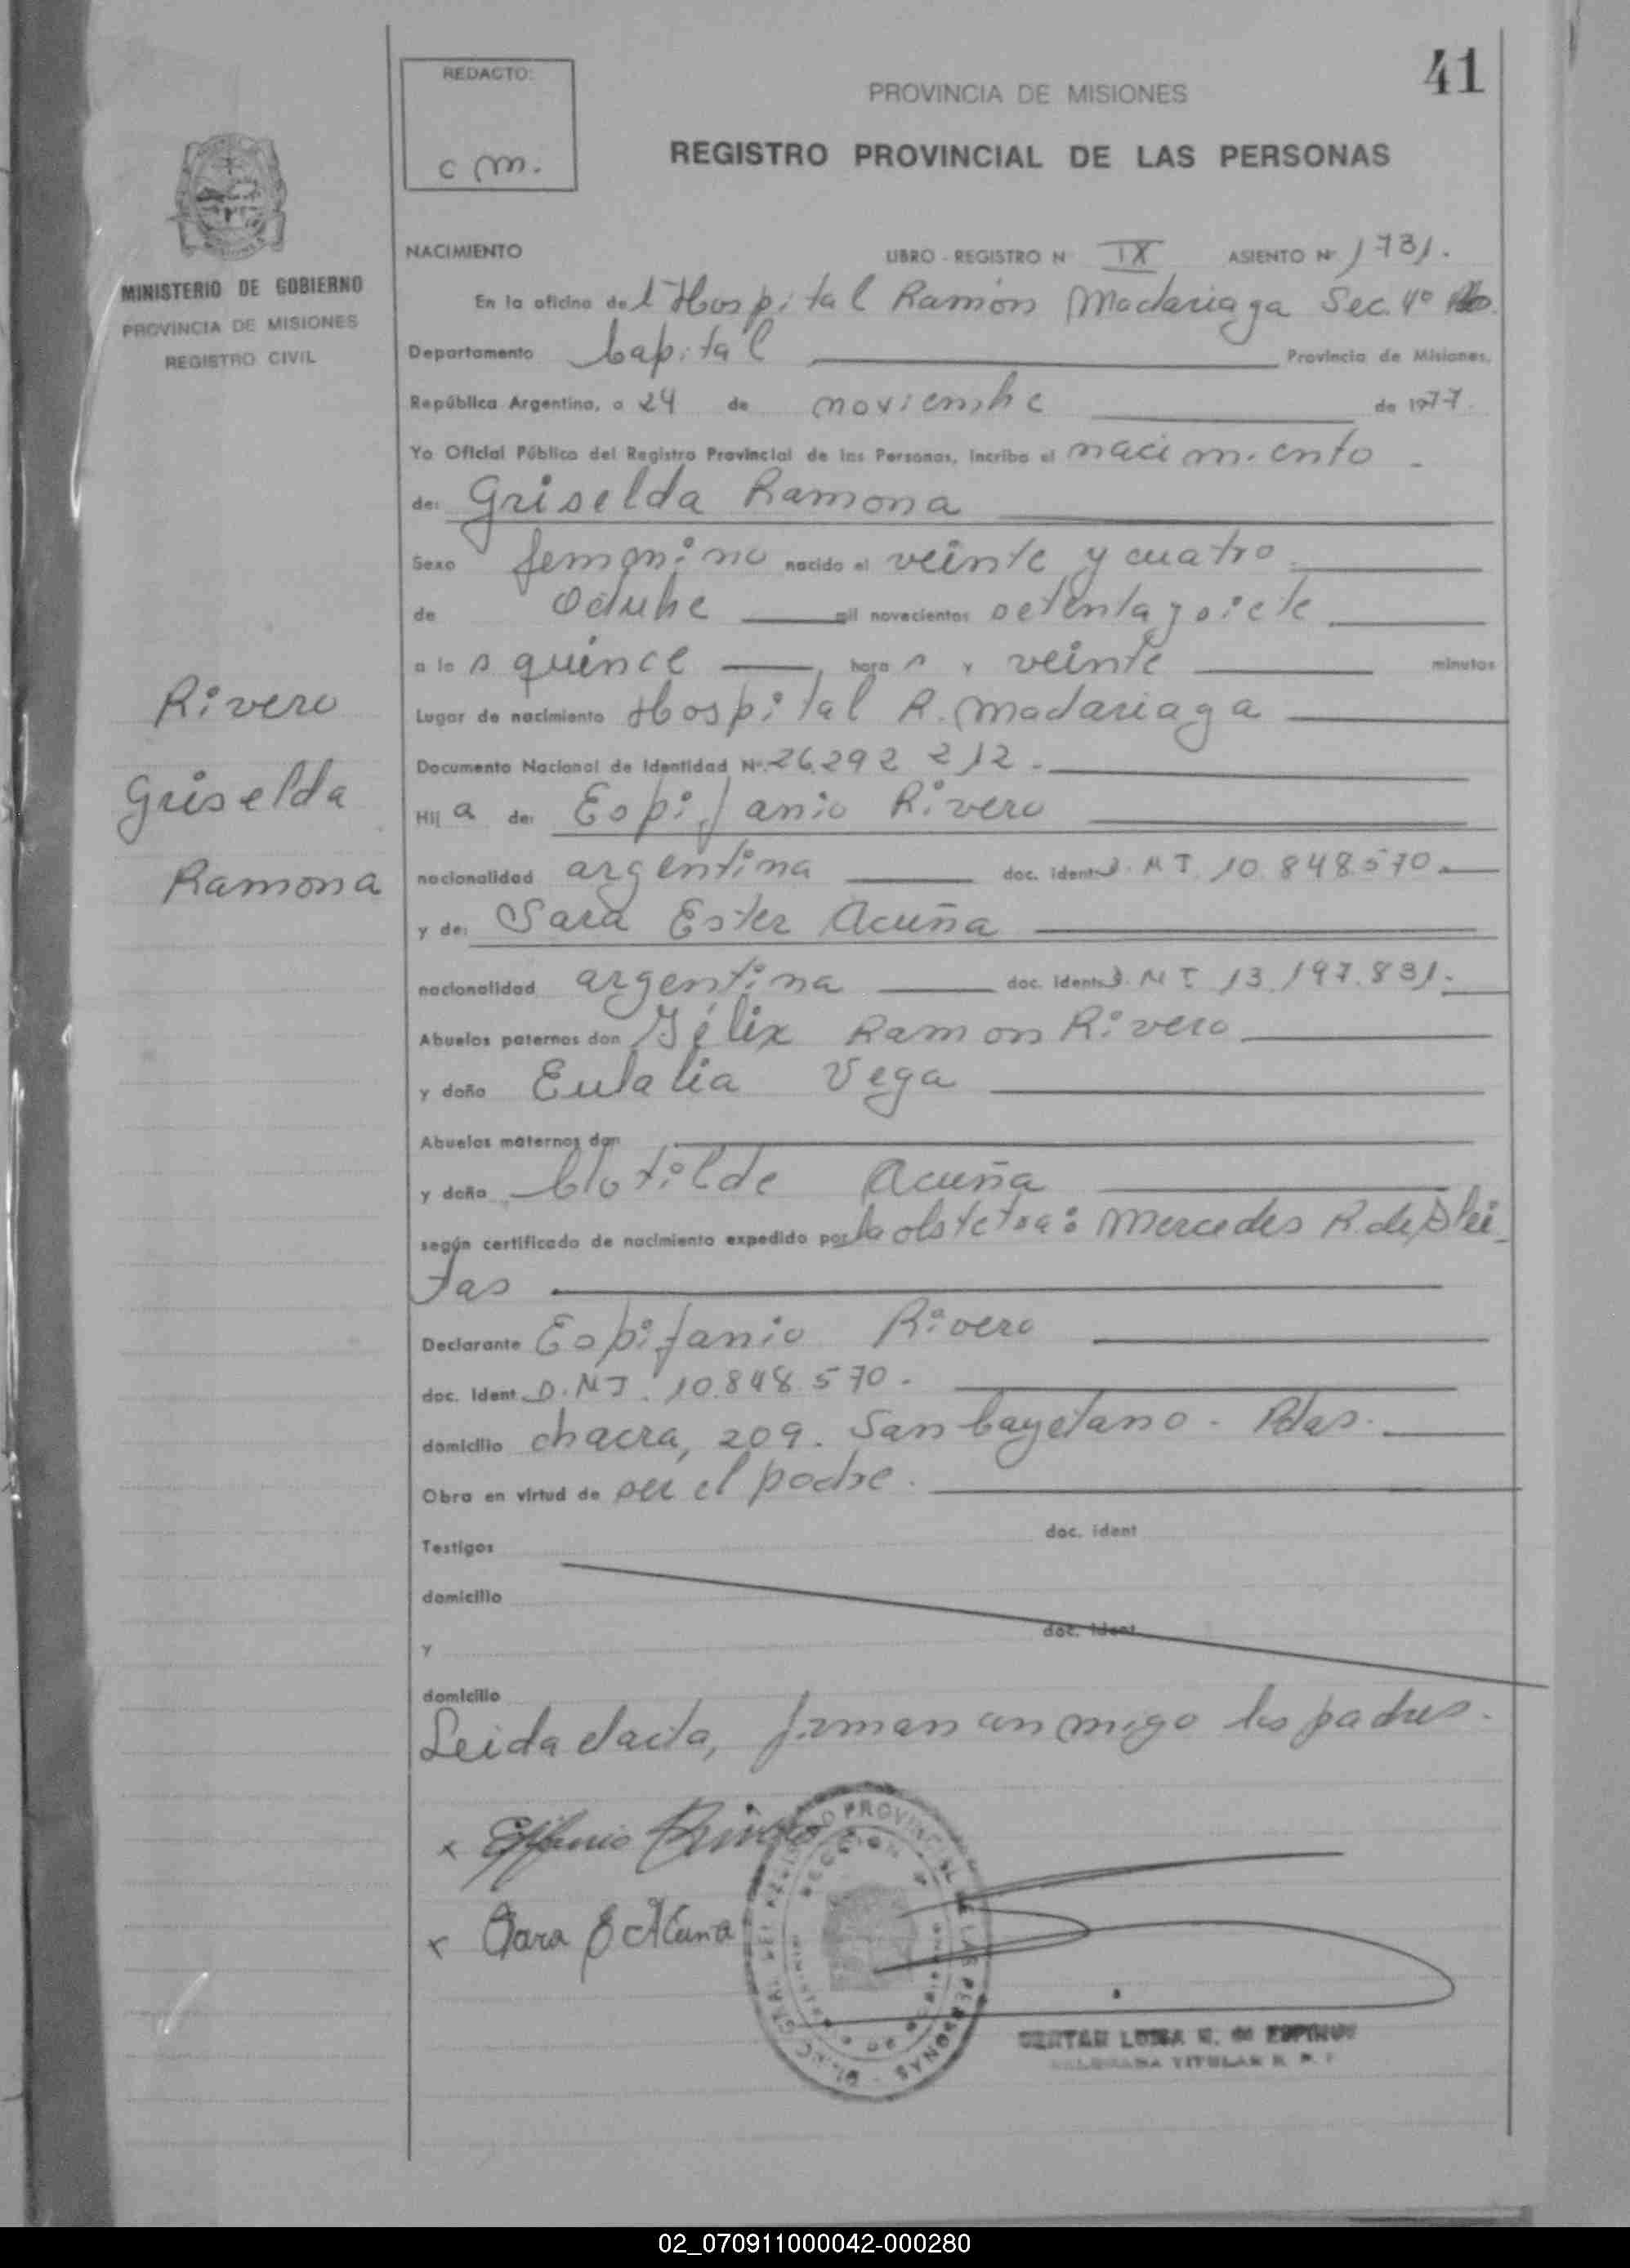 41
REDACTO:
c m.
PROVINCIA DE MISIONES
REGISTRO PROVINCIAL DE LAS PERSONAS
MINISTERIO DE GOBIERNO
PROVINCIA DE MISIONES
REGISTRO CIVIL
NACIMIENTO LIBRO - REGISTRO N IX ASIENTO Nº 1731.
En la oficina del Hospital Ramón Madariaga Sec. 4º
Departamento Capital Provincia de Misiones,
República Argentina, a 24 de noviembre de 1977.
Yo Oficial Público del Registro Provincial de las Personas, incribo el nacimiento
de: Griselda Ramona
Sexo femenino nacido el veinte y cuatro
de Octubre mil novecientos setenta y siete
a las quince horas y veinte minutos
Lugar de nacimiento Hospital R. Madariaga
Documento Nacional de Identidad Nº 26.292 212.
Hija de: Espifanio Rivero
nacionalidad argentina doc. ident D.NI. 10.848.570.
y de: Sara Ester Acuña
nacionalidad argentina doc. ident D.NI. 13.197.831.
Abuelos paternos don Félix Ramon Rivero
y doña Eulalia Vega
Abuelos maternos don
y doña Clotilde Acuña
según certificado de nacimiento expedido por la obstetra: Mercedes R. de Flei
tas
Declarante Espifanio Rivero
doc. Ident D.NI. 10.848.570.
domicilio chacra, 209. San Cayetano - Pdas.
Obra en virtud de ser el padre.
Testigos doc. ident
domicilio
y doc. ident
domicilio
Leida el acta, firman conmigo los padres.
Rivero
Griselda
Ramona
x Epifanio Rivero
x Sara E Acuna
REGISTRO PROVINCIAL DE LAS PERSONAS
LUISA
TITULAR
02_070911000042-000280